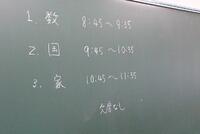 1. 数 8:45〜9:35
2. 国 9:45〜10:35
3. 家 10:45〜11:35
欠席なし